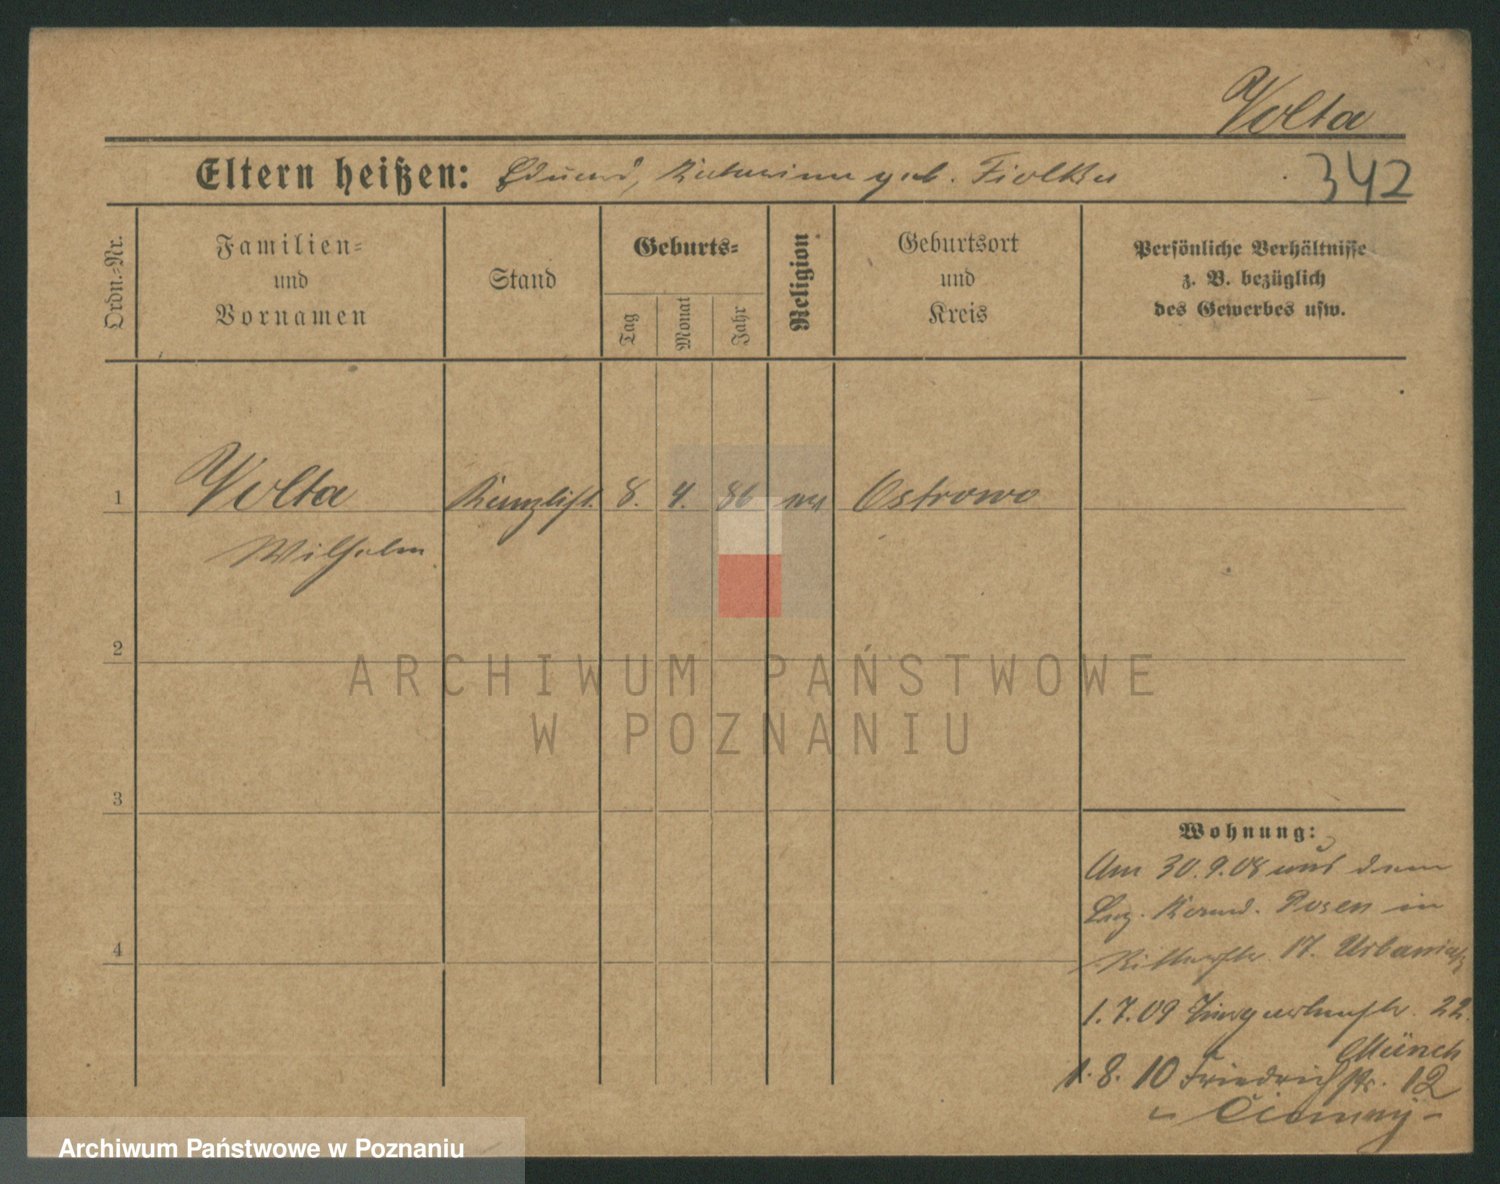 Volta
342
Eltern heißen: Eduard, Katharina geb. Fiolka
Ordn.-Nr.
Familien-
und
Vornamen
Stand
Geburts-
Tag
Monat
Jahr
Religion
Geburtsort
und
Kreis
Persönliche Verhältnisse
z. B. bezüglich
des Gewerbes usw.
1 Volta Kanzlist. 8. 4. 86 Ostrowo
Wilhelm
2
3
4
ARCHIWUM PAŃSTWOWE
W POZNANIU
Wohnung:
Am 30.9.08 aus dem
Bez. Komd. Posen in
Ritterstr. 17. Urbaniak
1.7.09 22.
Münch
1.8.10 Friedrichstr. 12
Archiwum Państwowe w Poznaniu